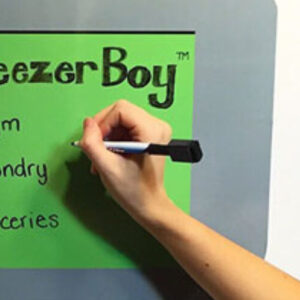 eezerBoy™
m
ndry
ceries